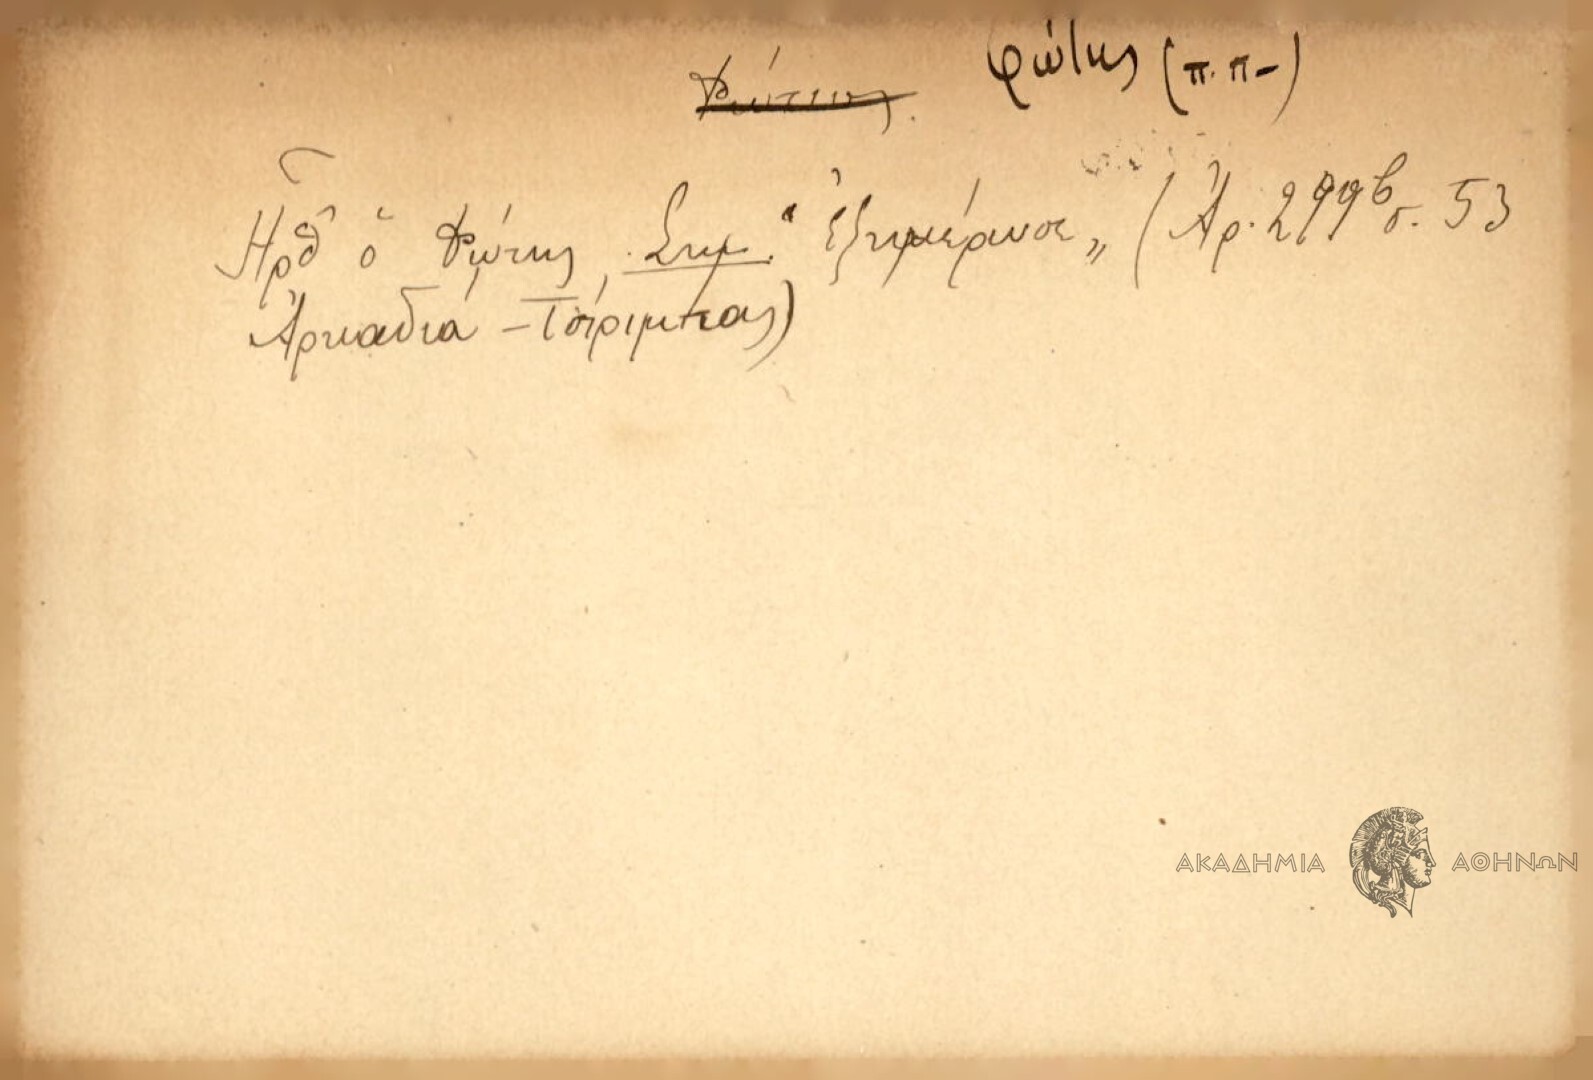 ~~Φώτης~~ φώτης (π.π-)
Ἦρθ' ὁ Φώτης, Σημ. "ἐξημέρωσε" (Ἀρ. 299β σ. 53
Ἀρκαδία -
ΑΚΑΔΗΜΙΑ ΑΘΗΝΩΝ